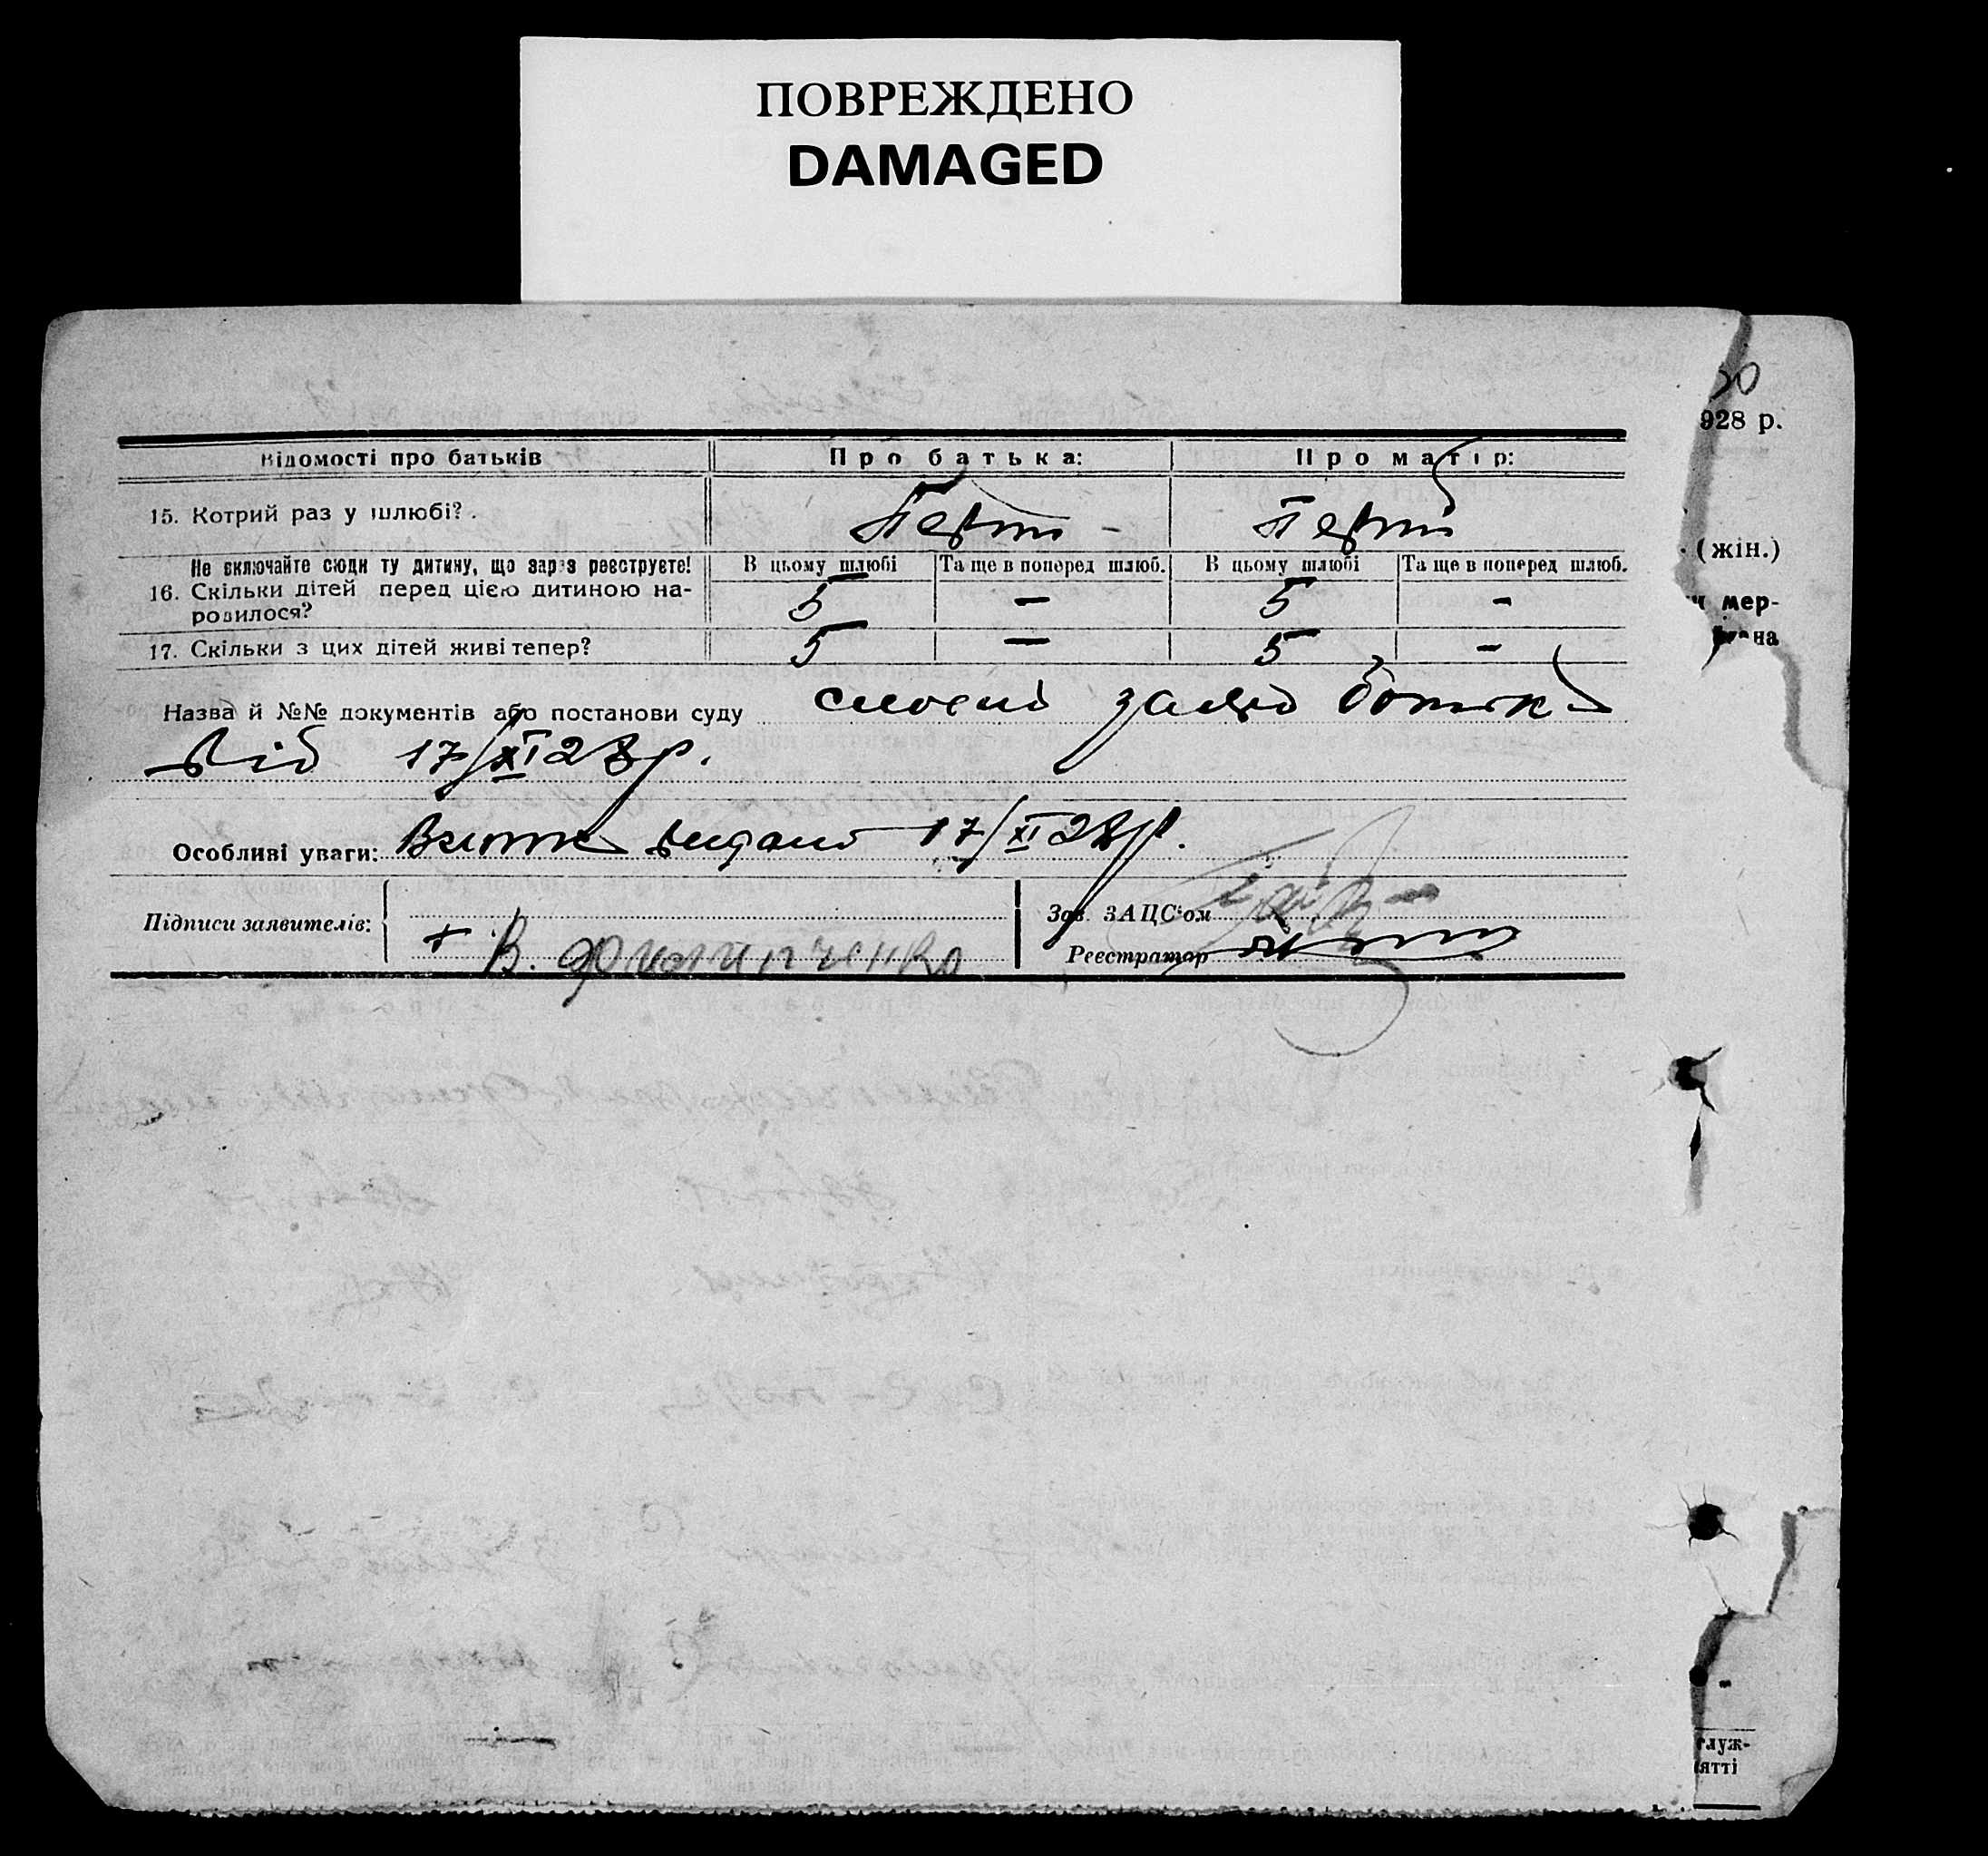 ПОВРЕЖДЕНО
DAMAGED
928 р.
Відомості про батьків Про батька: Про матір:
15. Котрий раз у шлюбі? . Перши - Перший
Не включайте сюди ту дитину, що зараз реєструєте! В цьому шлюбі Та ще в поперед шлюб. В цьому шлюбі Та ще в поперед шлюб.
16. Скільки дітей перед цією дитиною на-
родилося? 5 — 5 -
17. Скільки з цих дітей живі тепер? 5 — 5 -
(жін.)
мер-
на
Назва й №№ документів або постанови суду словесна заява батька
від 17/XI 28 р.
Особливі уваги: Витяг видано 17/XI 28 р.
Підписи заявителів: Зав. ЗАЦС'ом
+ В. Филипченко Реєстратор
луж-
ятті